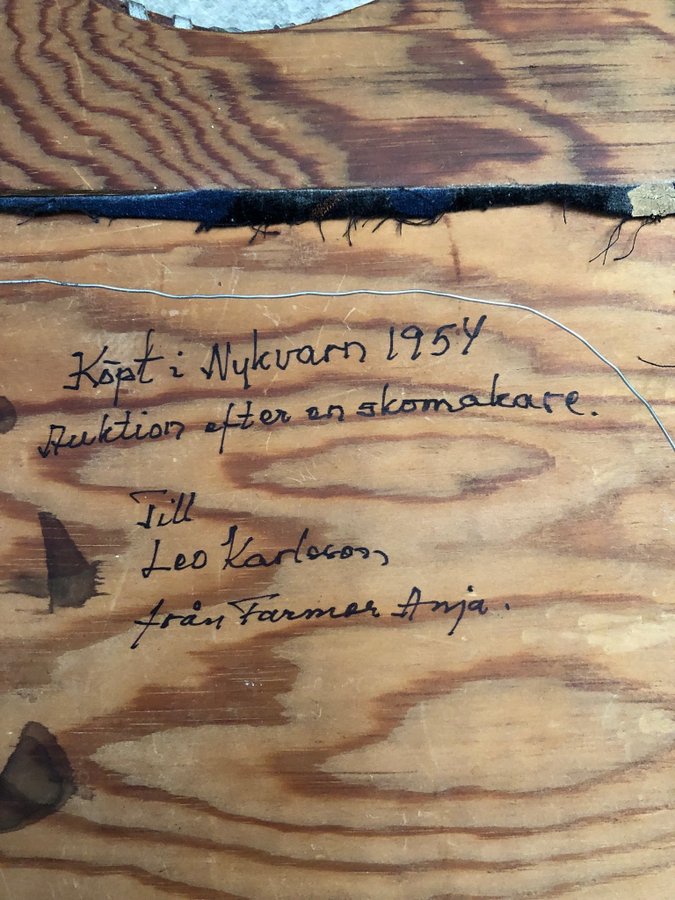 Köpt i Nykvarn 1954
Auktion efter en skomakare.
Till
Leo Karlsson
från Farmor Anja.